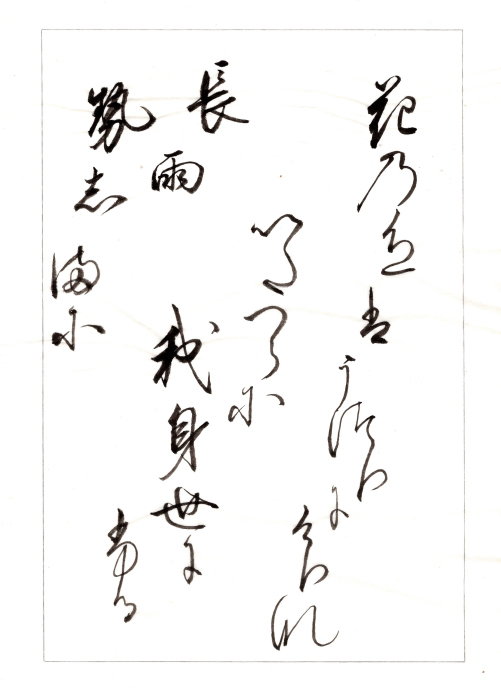 花乃色はうつりに
けりな
いたつら尓
我身世に
ふる
長雨
勢志満尓